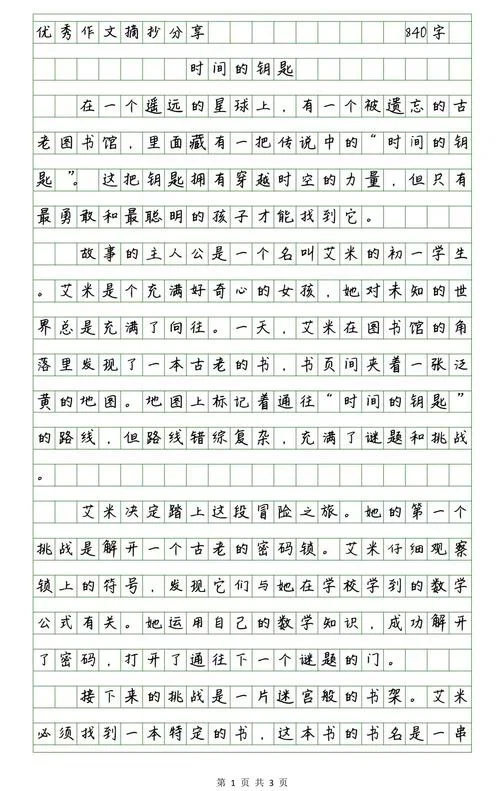 优秀作文摘抄分享 840字
时间的钥匙
在一个遥远的星球上，有一个被遗忘的古
老图书馆，里面藏有一把传说中的“时间的钥
匙”。这把钥匙拥有穿越时空的力量，但只有
最勇敢和最聪明的孩子才能找到它。
故事的主人公是一个名叫艾米的初一学生
。艾米是个充满好奇心的女孩，她对未知的世
界总是充满了向往。一天，艾米在图书馆的角
落里发现了一本古老的书，书页间夹着一张泛
黄的地图。地图上标记着通往“时间的钥匙”
的路线，但路线错综复杂，充满了谜题和挑战
。
艾米决定踏上这段冒险之旅。她的第一个
挑战是解开一个古老的密码锁。艾米仔细观察
锁上的符号，发现它们与她在学校学到的数学
公式有关。她运用自己的数学知识，成功解开
了密码，打开了通往下一个谜题的门。
接下来的挑战是一片迷宫般的书架。艾米
必须找到一本特定的书，这本书的书名是一串
第 1 页 共 3 页